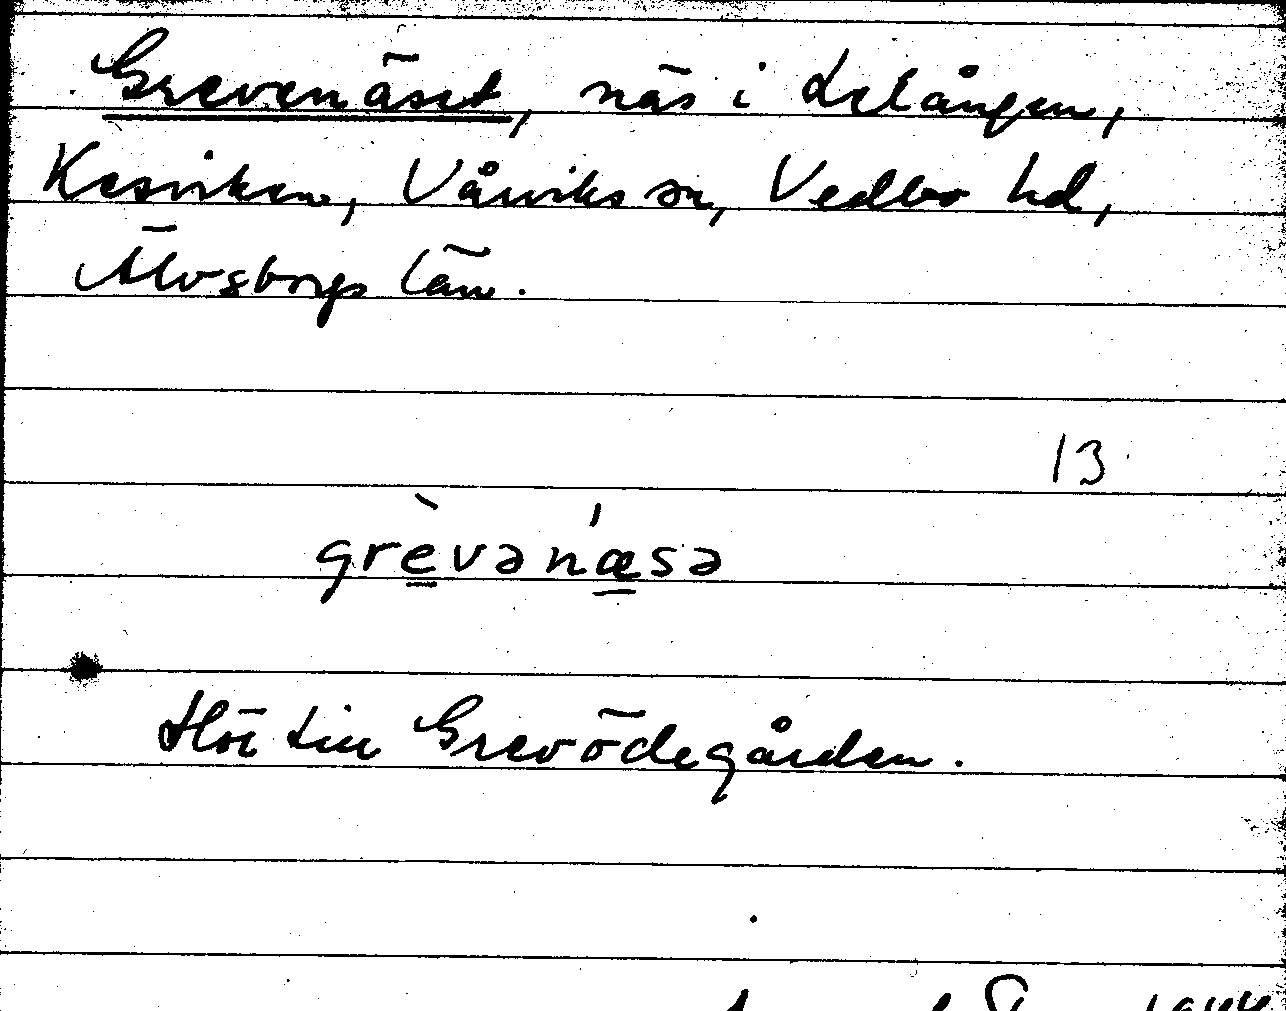 Grevenäset, näs i Lelången,
Kesviken, Vårviks sn, Vedbo hd,
Älvsborgs län.
13
grèvənǽsə
Hör till Grevödegården.